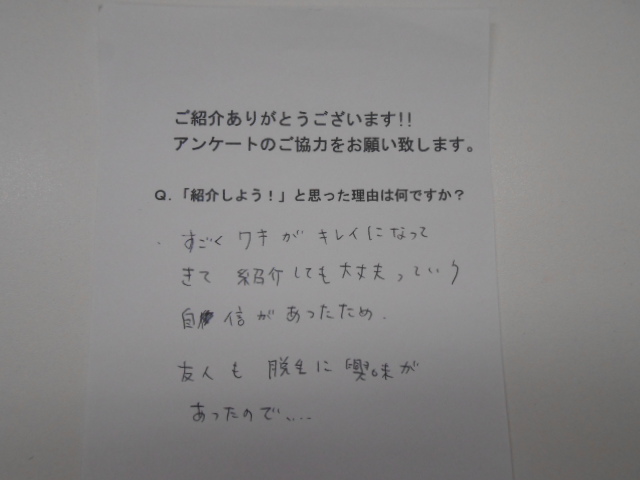 ご紹介ありがとうございます!!
アンケートのご協力をお願い致します。
Q.「紹介しよう!」と思った理由は何ですか?
・すごく ワキ が キレイになって
きて 紹介しても大丈夫っていう
自信があったため.
友人も 脱毛に 興味が
あったので....